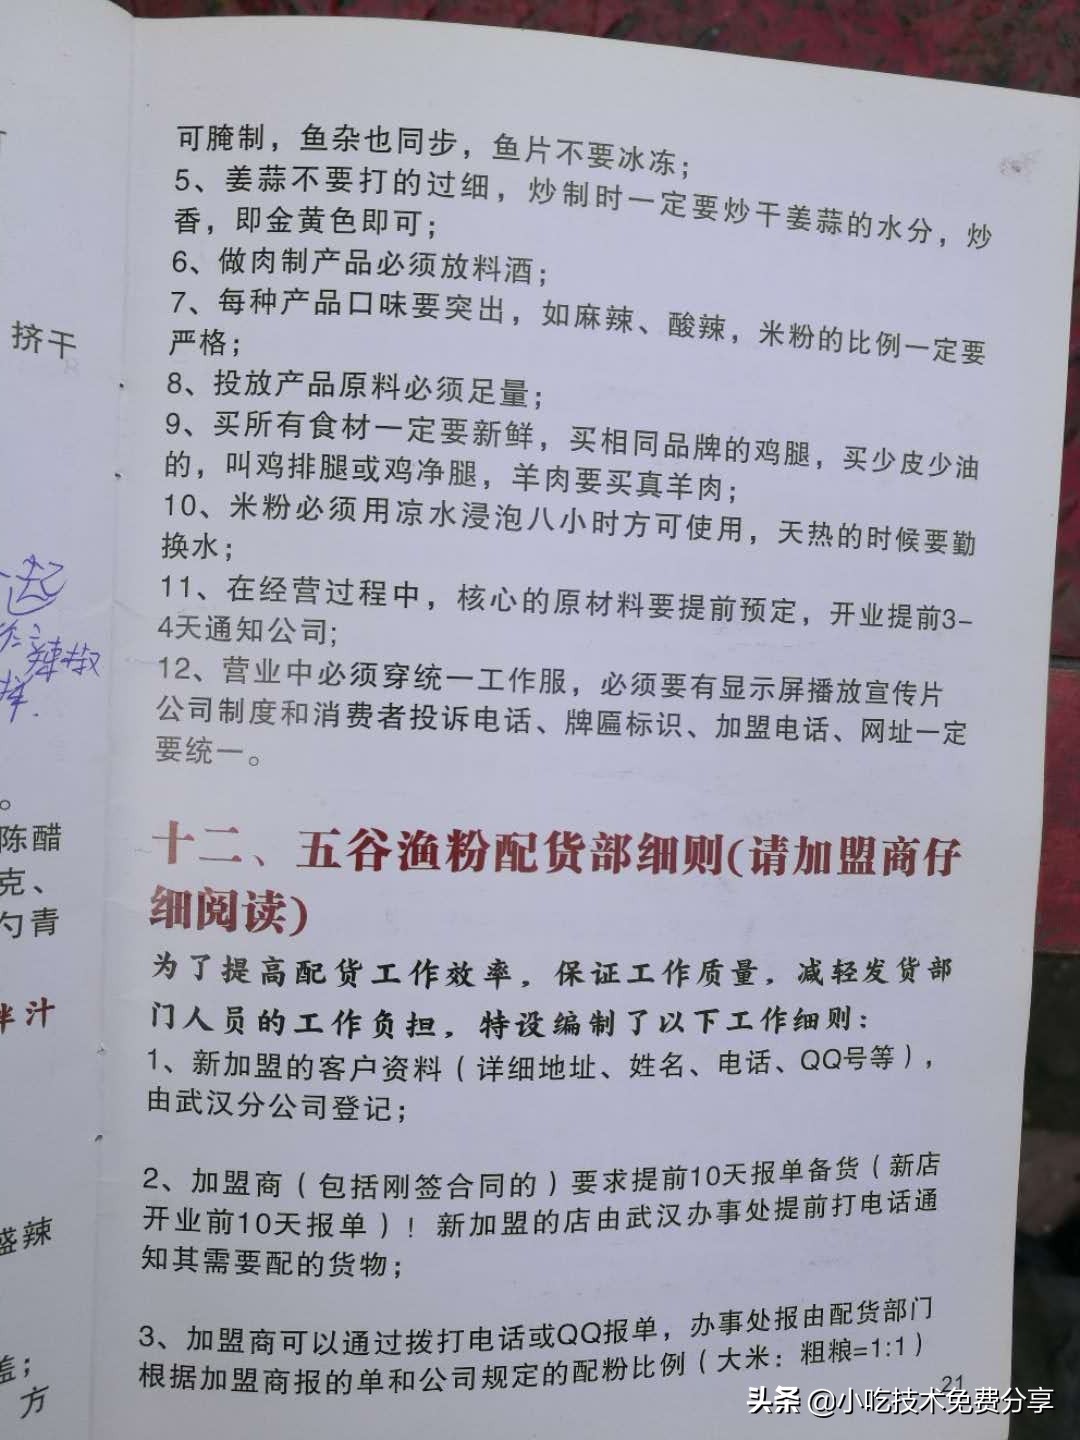 可腌制，鱼杂也同步，鱼片不要冰冻；
5、姜蒜不要打的过细，炒制时一定要炒干姜蒜的水分，炒
香，即金黄色即可；
6、做肉制产品必须放料酒；
7、每种产品口味要突出，如麻辣、酸辣，米粉的比例一定要
严格；
8、投放产品原料必须足量；
9、买所有食材一定要新鲜，买相同品牌的鸡腿，买少皮少油
的，叫鸡排腿或鸡净腿，羊肉要买真羊肉；
10、米粉必须用凉水浸泡八小时方可使用，天热的时候要勤
换水；
11、在经营过程中，核心的原材料要提前预定，开业提前3-
4天通知公司;
12、营业中必须穿统一工作服，必须要有显示屏播放宣传片
公司制度和消费者投诉电话、牌匾标识、加盟电话、网址一定
要统一。
十二、五谷渔粉配货部细则(请加盟商仔
细阅读)
为了提高配货工作效率，保证工作质量，减轻发货部
门人员的工作负担，特设编制了以下工作细则：
1、新加盟的客户资料（详细地址、姓名、电话、QQ号等），
由武汉分公司登记；
2、加盟商（包括刚签合同的）要求提前10天报单备货（新店
开业前10天报单）！新加盟的店由武汉办事处提前打电话通
知其需要配的货物；
3、加盟商可以通过拨打电话或QQ报单，办事处报由配货部门
根据加盟商报的单和公司规定的配粉比例（大米：粗粮=1:1）
21
挤干
起
辣椒
拌.
。
陈醋
克、
勺青
拌汁
盛辣
盖；
方
头条 @小吃技术免费分享